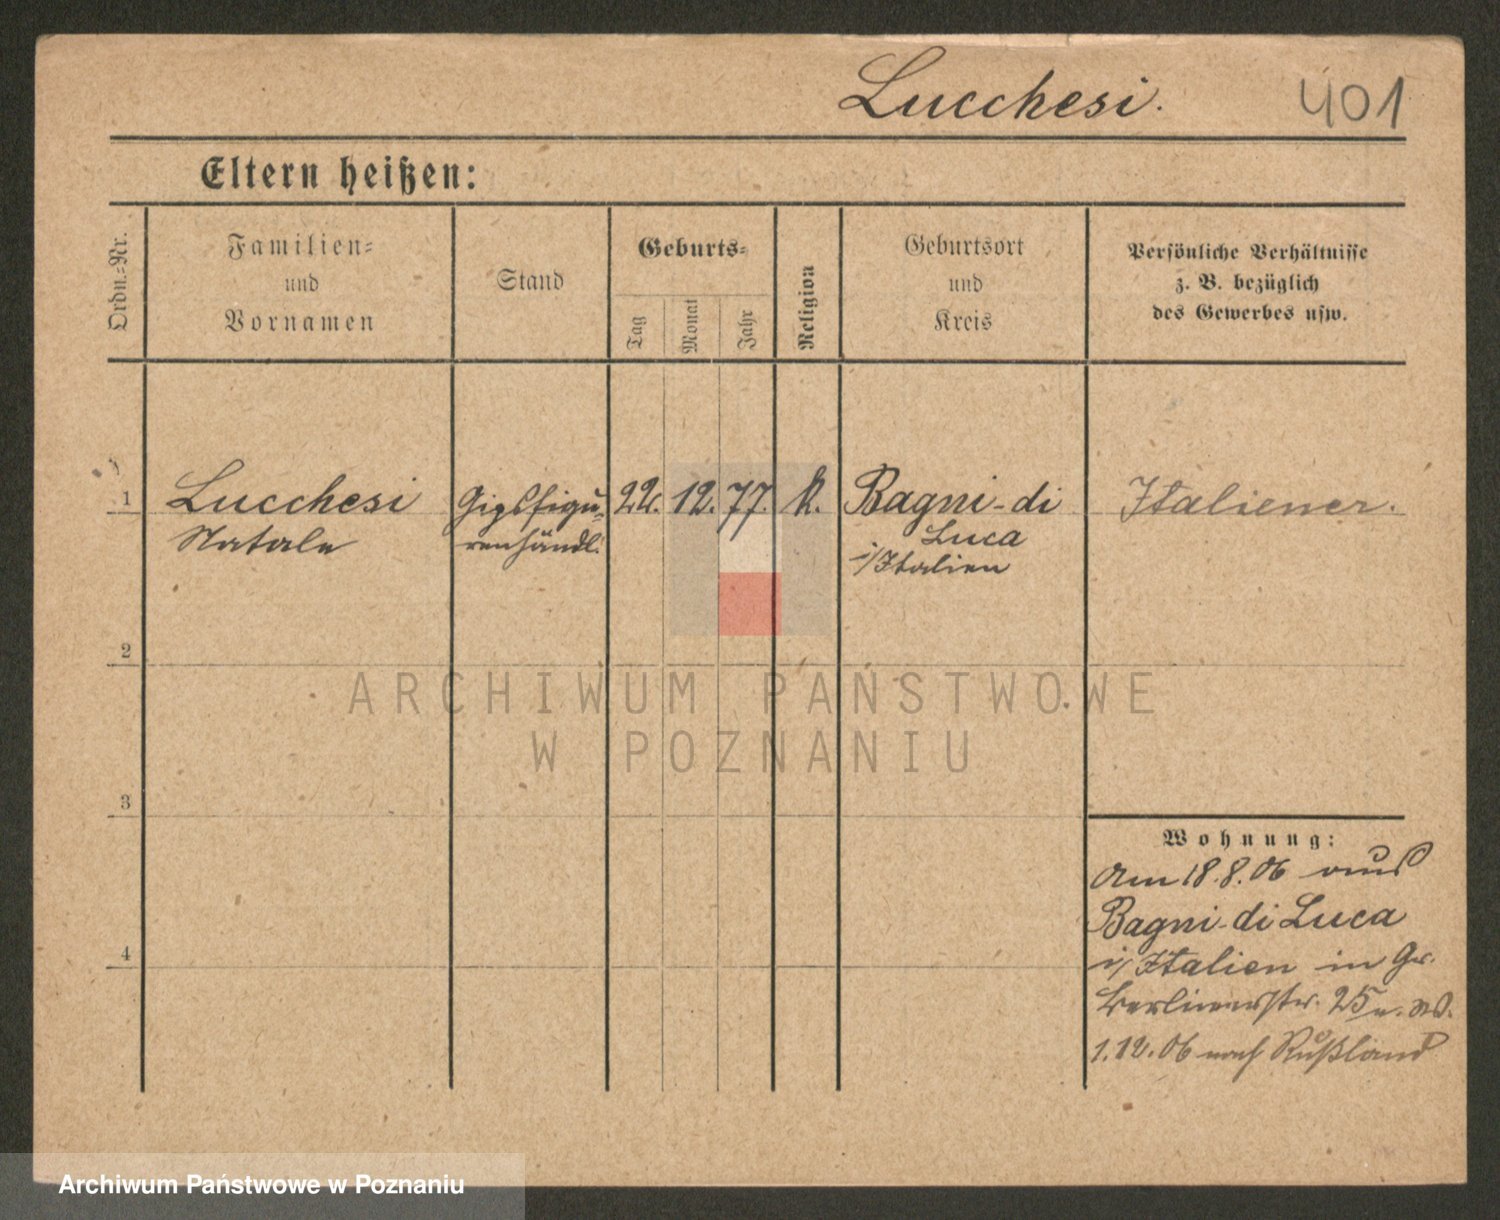 Lucchesi. 401
Eltern heißen:
Ordn.=Nr.
Familien=
und
Vornamen
Stand
Geburts=
Tag
Monat
Jahr
Religion
Geburtsort
und
Kreis
Persönliche Verhältnisse
z. B. bezüglich
des Gewerbes usw.
1 Lucchesi Gipsfigu= 22. 12. 77. k. Bagni-di Italiener.
Natale renhändl. Luca
i/Italien
2
3
4
Wohnung:
Am 18.8.06 aus
Bagni-di Luca
i/Italien in Gr.
Berlinerstr. 25
1.12.06 nach Rußland
ARCHIWUM PAŃSTWOWE
W POZNANIU
Archiwum Państwowe w Poznaniu